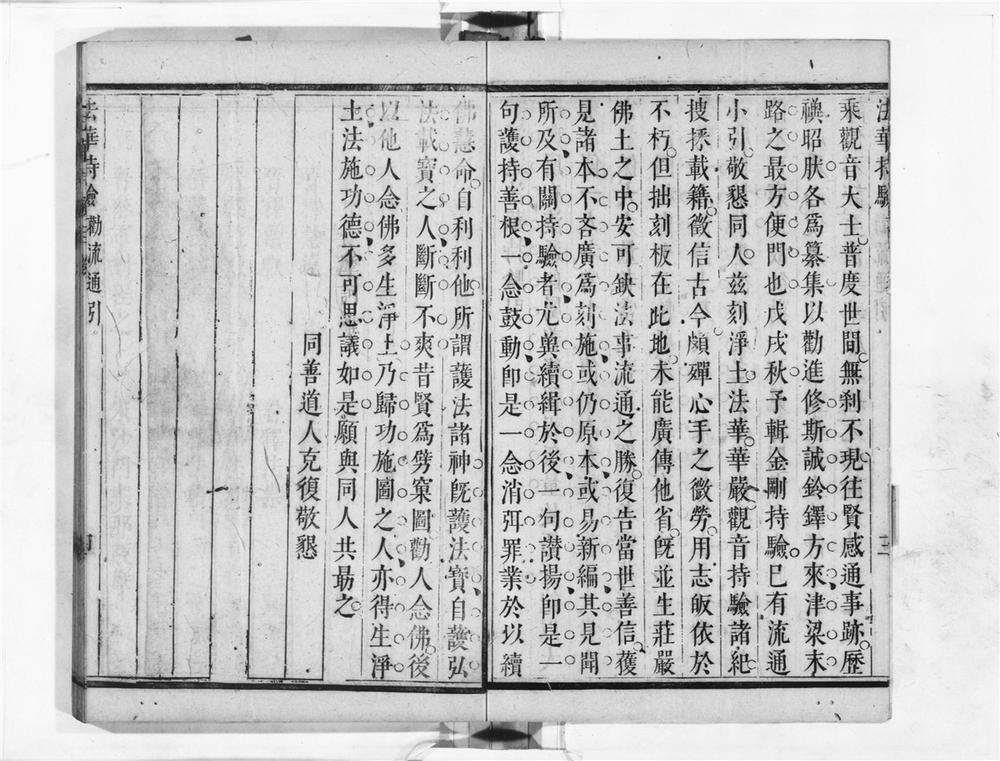 法華持驗
三
乘觀音大士普度世間無刹不現往賢感通事跡歷
禩昭肰各爲纂集以勸進修斯誠鈴鐸方來津梁末
路之最方便門也戊戌秋予輯金剛持驗已有流通
小引敬懇同人玆刻淨土法華華嚴觀音持驗諸紀
搜採載籍徵信古今頗殫心手之微勞用志皈依於
不朽但拙刻板在此地未能廣傳他省旣並生莊嚴
佛土之中安可缺法事流通之勝復告當世善信獲
見諸本不吝廣爲刻施或仍原本或易新編其見聞
所及有關持驗者尤兾續緝於後一句讚揚卽是一
句護持善根一念鼓動卽是一念消弭罪業於以續
佛慧命自利利他所謂護法諸神旣護法寶自護弘
法載寶之人斷斷不爽昔賢爲劈窠圖勸人念佛後
以他人念佛多生淨土乃歸功施圖之人亦得生淨
土法施功德不可思議如是願與同人共勗之
同善道人克復敬懇
法華持驗勸流通引